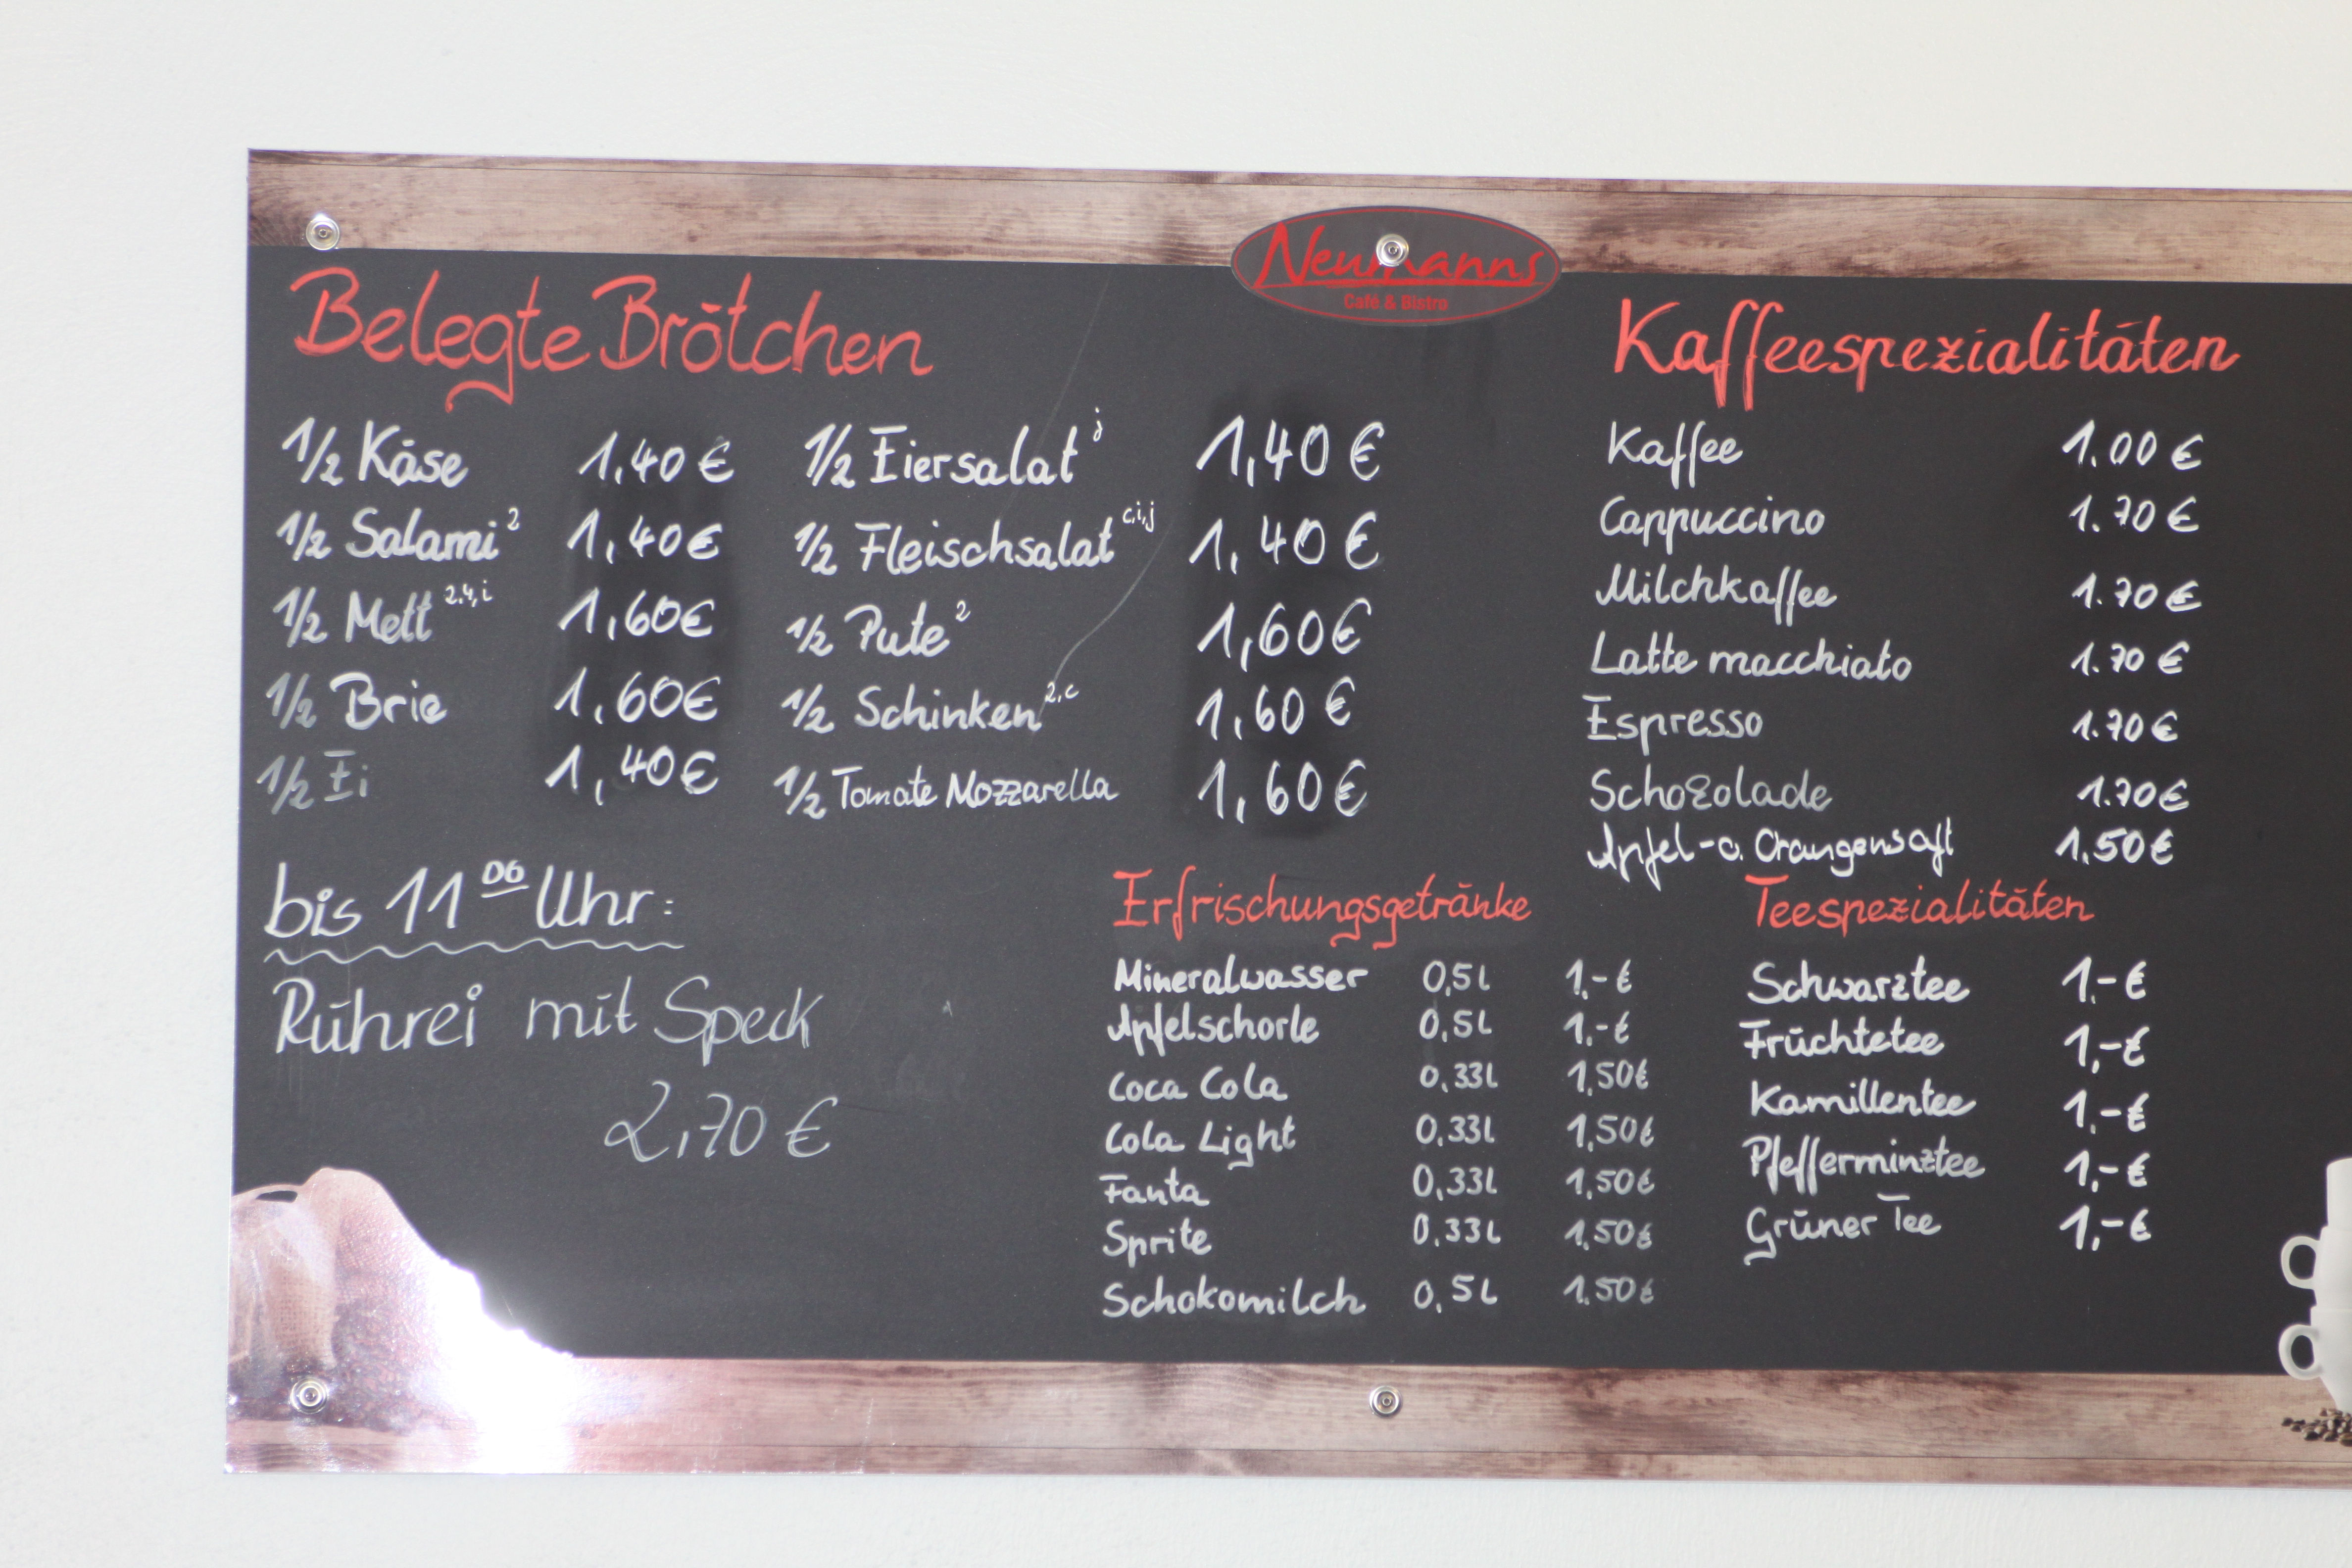 Neumanns
Café & Bistro
Belegte Brötchen
1/2 Käse 1,40 €
1/2 Salami 2 1,40 €
1/2 Mett 2,4,i 1,60 €
1/2 Brie 1,60 €
1/2 Ei 1,40 €
1/2 Eiersalat j 1,40 €
1/2 Fleischsalat c,i,j 1,40 €
1/2 Pute 2 1,60 €
1/2 Schinken 2,c 1,60 €
1/2 Tomate Mozzarella 1,60 €
bis 11 00 Uhr:
Rührei mit Speck
2,70 €
Kaffeespezialitäten
Kaffee 1.00 €
Cappuccino 1.70 €
Milchkaffee 1.70 €
Latte macchiato 1.70 €
Espresso 1.70 €
Schokolade 1.70 €
Apfel- o. Orangensaft 1.50 €
Erfrischungsgetränke
Mineralwasser 0,5 L 1,- €
Apfelschorle 0,5 L 1,- €
Coca Cola 0,33 L 1,50 €
Cola Light 0,33 L 1,50 €
Fanta 0,33 L 1,50 €
Sprite 0,33 L 1,50 €
Schokomilch 0,5 L 1,50 €
Teespezialitäten
Schwarztee 1,- €
Früchtetee 1,- €
Kamillentee 1,- €
Pfefferminztee 1,- €
Grüner Tee 1,- €